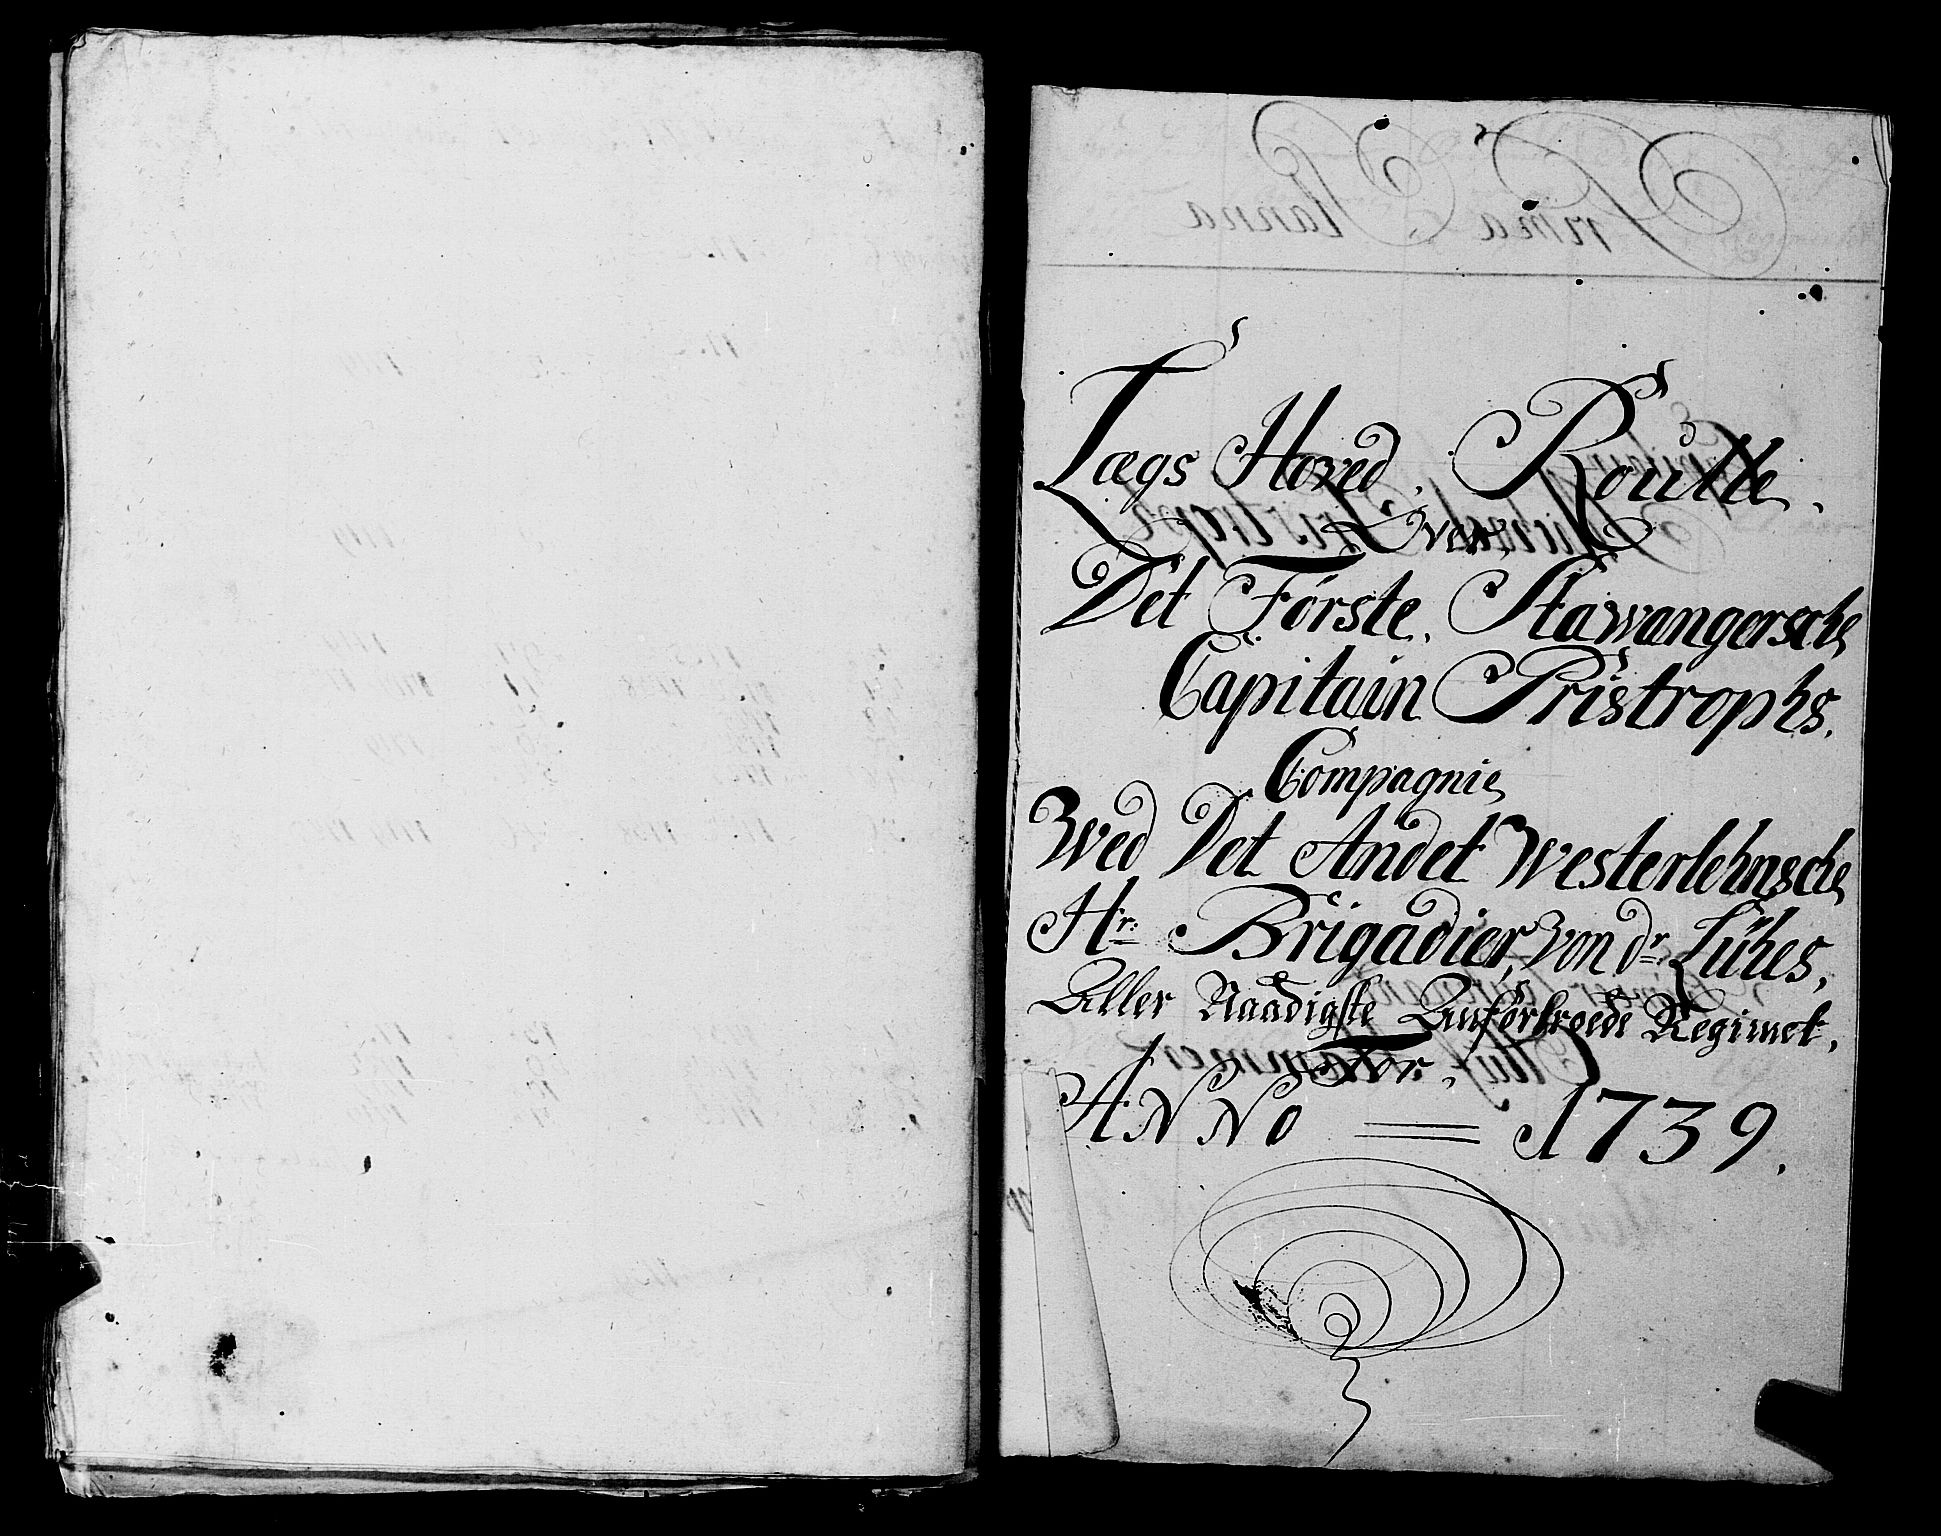 Lægs Hoved, Roulle,
Over,
Det Förste, Stawangersche
Capitain Pristrophs,
Compagnie,
Wed Det Andet Westerlehnsche
Hr: Brigadier, von dr: Lühes,
Aller Naadigste Anförtroede Regimet,
For,
ANNO = 1739.